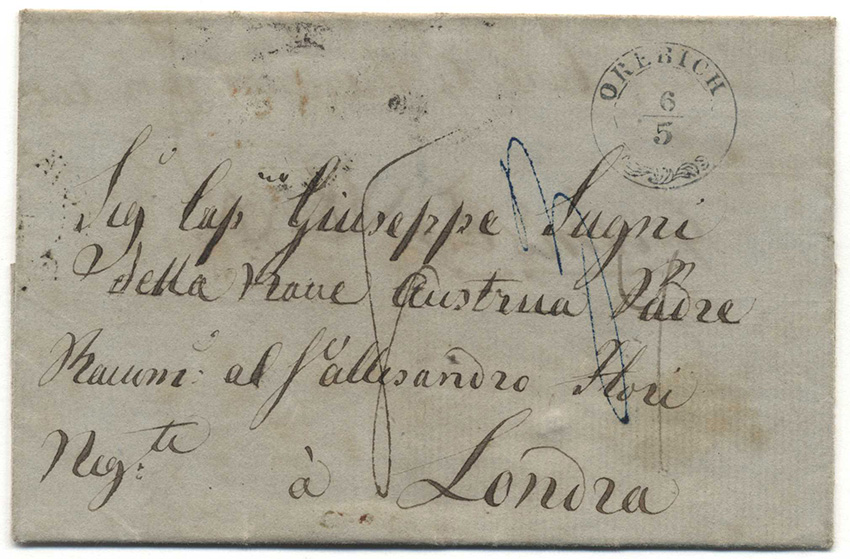 OREBICH
6
5
Sig.r Cap.no Giuseppe Sugni
della Nave Austriua Padre
Racum: al S.r Allesandro Flori
Neg:te
à Londra